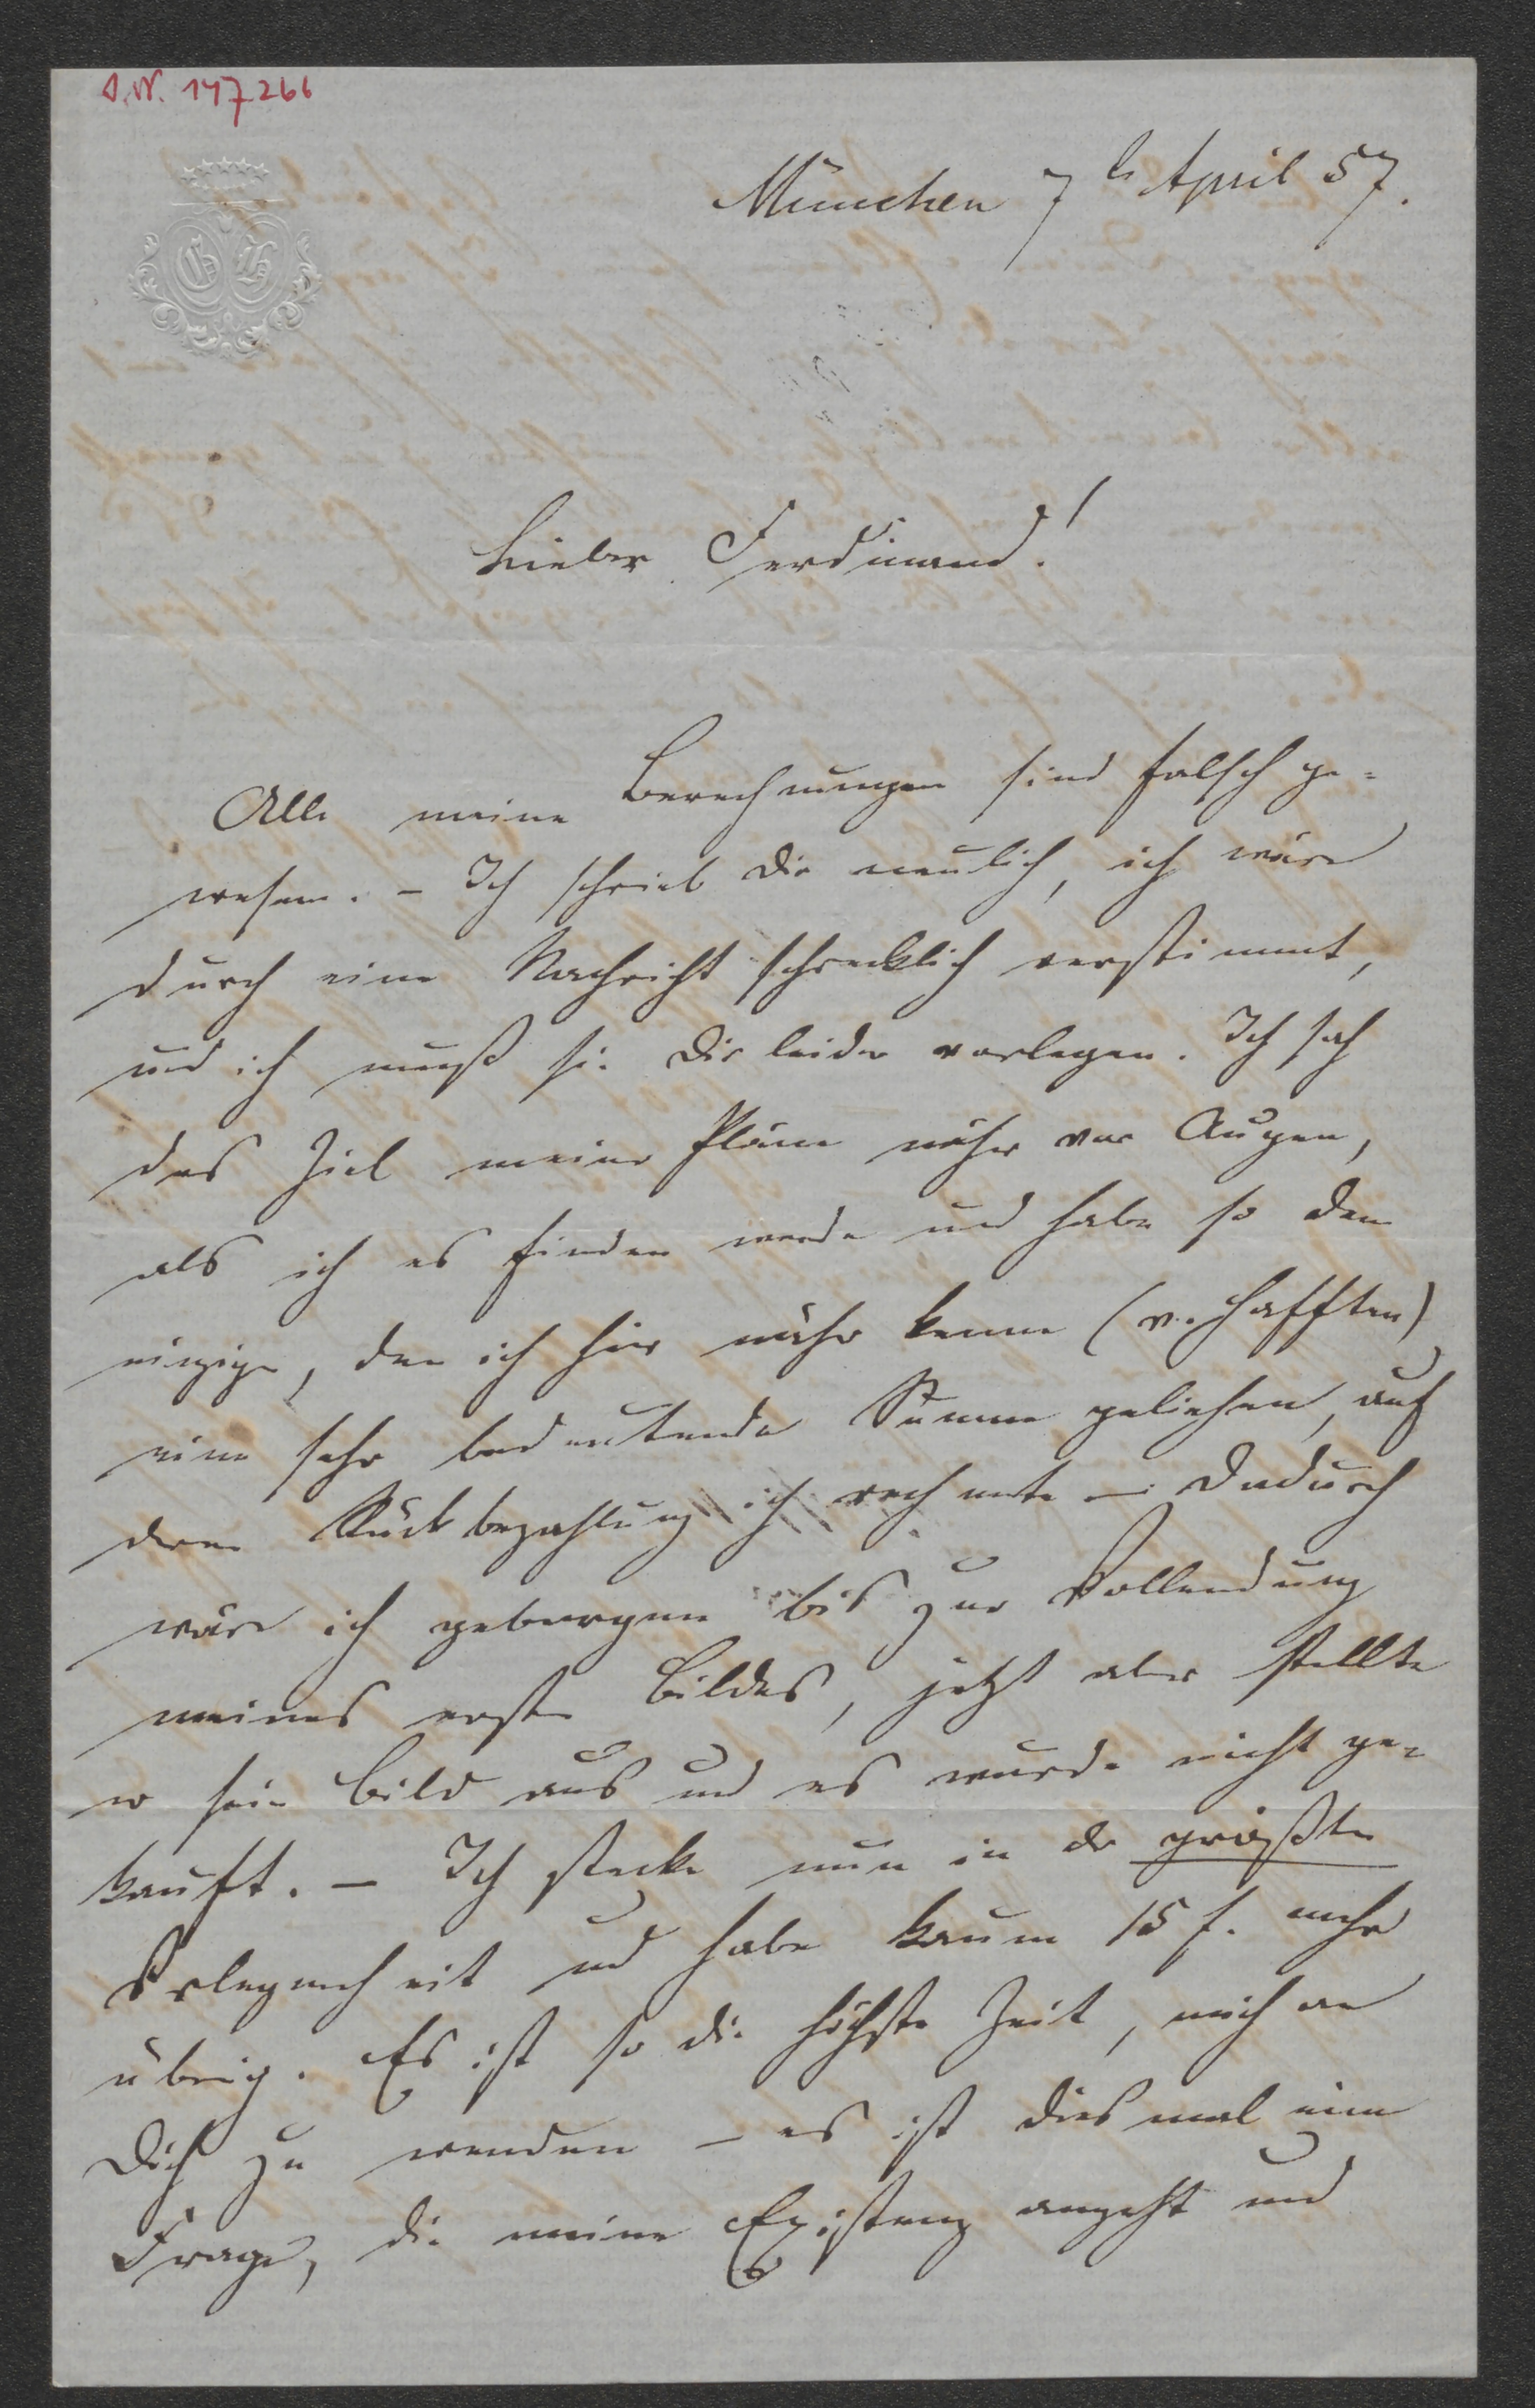 I.N. 147266
G H
München 7 t April 57.
Lieber Ferdinand!
Alle meine Berechnungen sind falsch ge=
wesen. – Ich schrieb Dir neulich, ich wäre
durch eine Nachricht schrecklich verstimmt,
und ich muß sie Dir leider vorlegen. Ich sah
das Ziel meiner Pläne näher vor Augen,
als ich es finden werde und habe so dem
einzigen, den ich hier näher kenne (v. Hafften)
eine sehr bedeutende Summe geliehen, auf
deren Rückbezahlung ich rechnete – dadurch
wäre ich geborgen bis zur Vollendung
meines ersten Bildes, jetzt aber stellte
er sein Bild aus und es wurde nicht ge=
kauft. – Ich stecke nun in der größten
Verlegenheit und habe kaum 15 f. mehr
übrig. Es ist so die höchste Zeit, mich an
Dich zu wenden – es ist dies mal eine
Frage, die meine Existenz angeht und